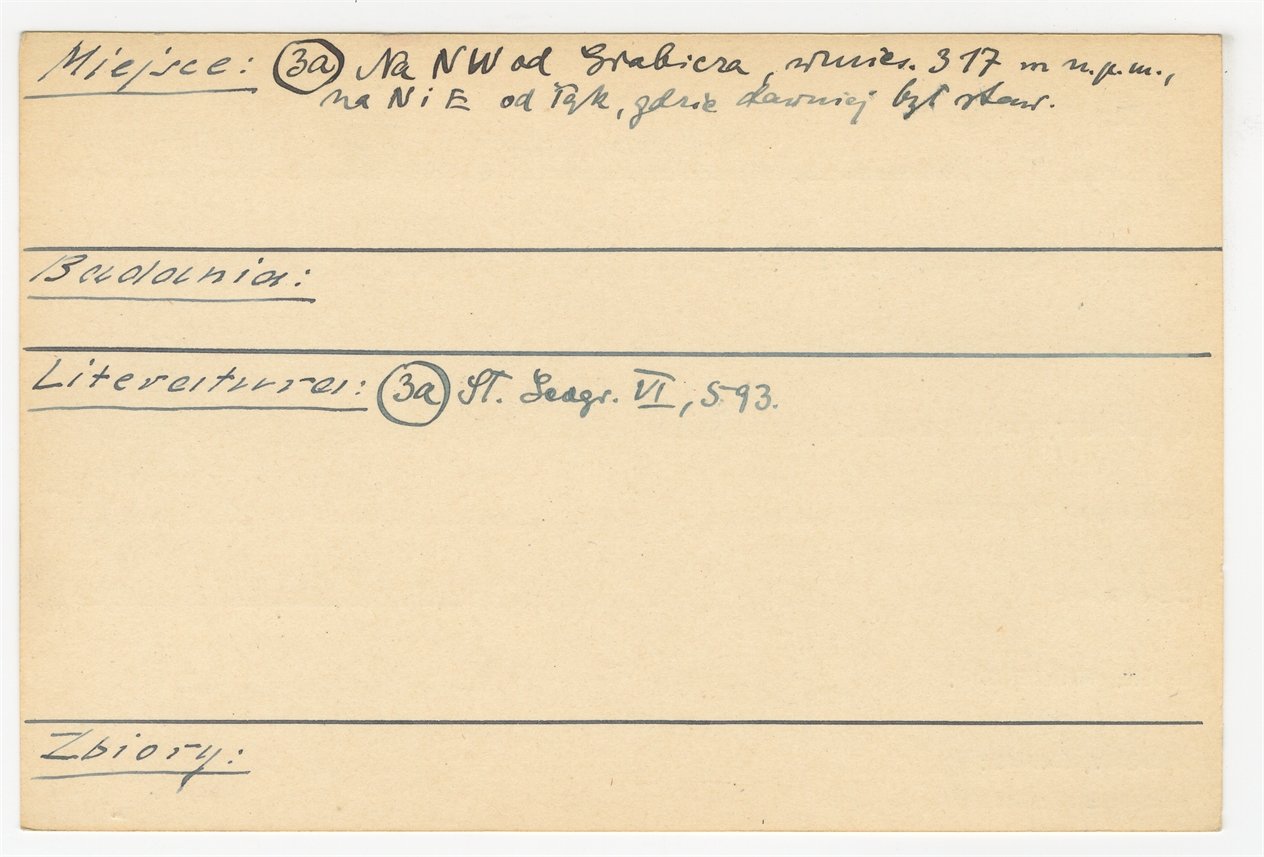 Miejsce: 3a Na NW od Grabicza, wznies. 317 m n.p.m.,
na N i E od łąk, gdzie dawniej był staw.
Badania:
Literatura: 3a St. Geogr. VI, s. 93.
Zbiory: